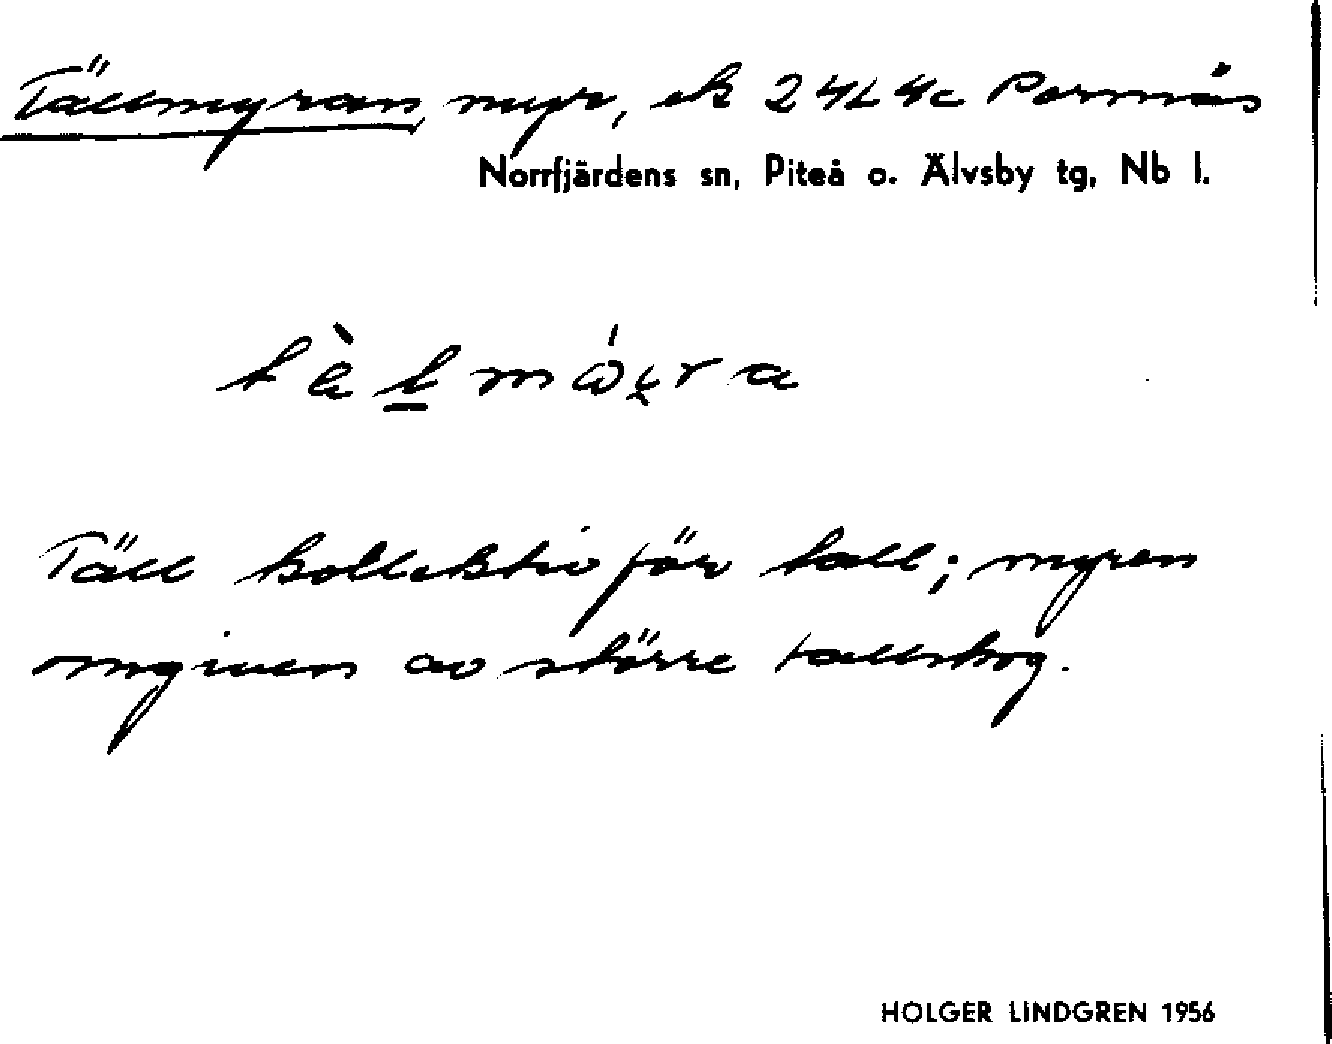 Tällmyran, myr, ek 24L4c Pormnäs
Norrfjärdens sn, Piteå o. Älvsby tg, Nb l.
Täll kollektiv för tall; myren
omgiven av större tallskog.
HOLGER LINDGREN 1956